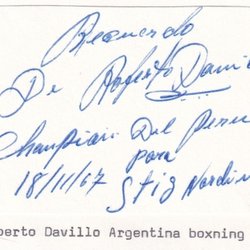 Recuerdo
De Roberto Davi
Champian Del Peru
para
18/11/67 Stig Nordin
berto Davillo Argentina boxning